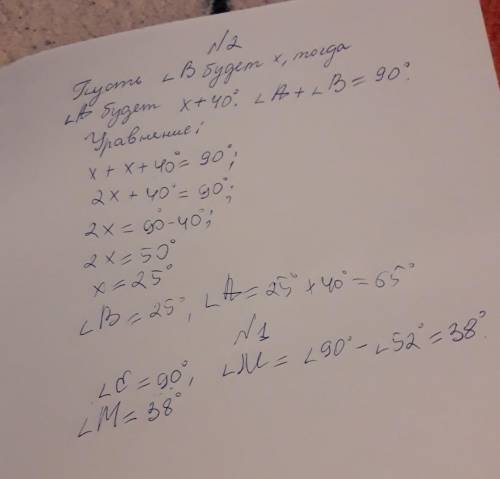 №2
Пусть ∠B будет x, тогда
∠A будет x+40°. ∠A+∠B=90°.
Уравнение:
x+x+40°=90°;
2x+40°=90°;
2x=90°-40°;
2x=50°
x=25°
∠B=25°, ∠A=25°+40°=65°
№1
∠C=90°, ∠M=∠90°-∠52°=38°
∠M=38°